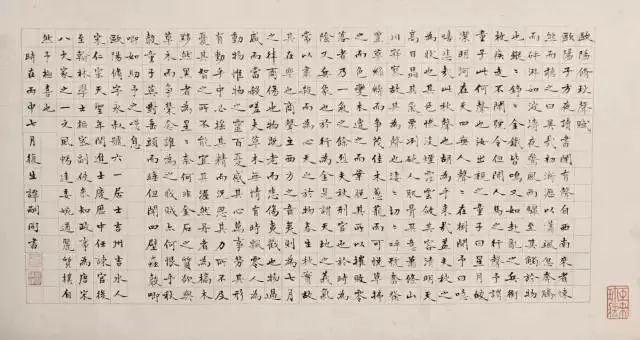 歐陽脩秋聲賦
歐陽子方夜讀書聞有聲自西南來者悚
然而聽之曰異哉初淅瀝以蕭颯忽奔騰
而砰湃如波濤夜驚風雨驟至其觸於物
也鏦鏦錚錚金鐵皆鳴又如赴敵之兵銜
枚疾走不聞號令但聞人馬之行聲予謂
童子此何聲也汝出視之童子曰星月皎
潔明河在天四無人聲聲在樹間予曰噫
嘻悲哉此秋聲也胡為而來哉蓋夫秋之
為狀也其色慘淡煙霏雲斂其容清明天
高日晶其氣慄冽砭人肌骨其意蕭條山
川寂寥故其為聲也淒淒切切呼號奮發
豐草綠縟而爭茂佳木蔥蘢而可悅草拂
之而色變木遭之而葉脫其所以摧敗零
落者乃一氣之餘烈夫秋刑官也於時為
陰又兵象也於行為金是謂天地之義氣
常以肅殺而為心天之於物春生秋實故
其在樂也商聲主西方之音夷則為七月
之律商傷也物既老而悲傷夷戮也物過
盛而當殺嗟夫草木無情有時飄零人為
動物惟物之靈百憂感其心萬事勞其形
有動乎中必搖其精而況思其力之所不及
憂其智之所不能宜其渥然丹者為槁木
黟然黑者為星星奈何非金石之質欲與
草木而爭榮念誰為之戕賊亦何恨乎秋
聲童子莫對垂頭而睡但聞四壁蟲聲唧
唧如助予之嘆息
歐陽脩字永叔號六一居士吉州吉水人
宋仁宗天聖年間進士慶曆中任諫官後
至翰林學士樞密副使參知政事為唐宋
八大家之一文風暢達委婉遒麗質樸自
然予極喜也
時在丙申七月後生譚嗣同書